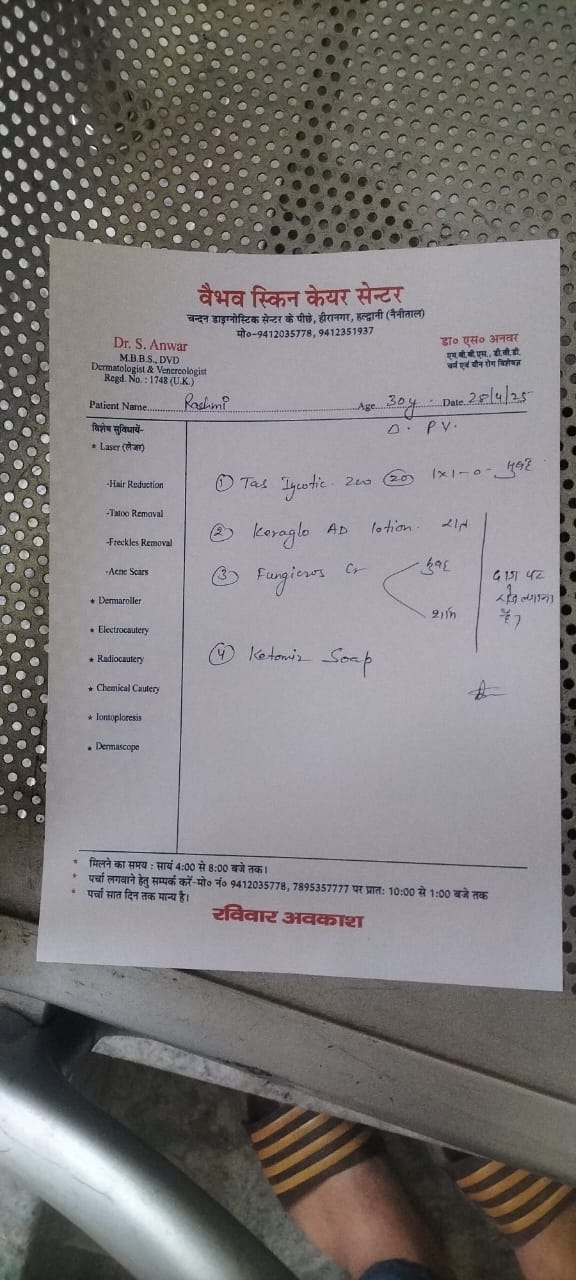 वैभव स्किन केयर सेन्टर
चन्दन डाइग्नोस्टिक सेन्टर के पीछे, हीरानगर, हल्द्वानी (नैनीताल)
मो०-9412035778, 9412351937
Dr. S. Anwar
M.B.B.S., DVD
Dermatologist & Venereologist
Regd. No. : 1748 (U.K.)
डा० एस० अनवर
एम.बी.बी.एस., डी.वी.डी.
चर्म एवं यौन रोग विशेषज्ञ
Patient Name Rashmi Age 30y. Date 28/4/25
विशेष सुविधायें-
* Laser (लेजर)
-Hair Reduction
-Tatoo Removal
-Freckles Removal
-Acne Scars
* Dermaroller
* Electrocautery
* Radiocautery
* Chemical Cautery
* Iontoploresis
* Dermascope
P.V.
① Tas 200 (20) 1x1-0- सुबह
② Keraglo AD lotion. रात
③ Fungicros Cr सुबह
शाम
दाग पर
लगाना
है
④ Ketomiz Soap
* मिलने का समय : सायं 4:00 से 8:00 बजे तक।
* पर्चा लगवाने हेतु सम्पर्क करें-मो० नं० 9412035778, 7895357777 पर प्रातः 10:00 से 1:00 बजे तक
* पर्चा सात दिन तक मान्य है।
रविवार अवकाश